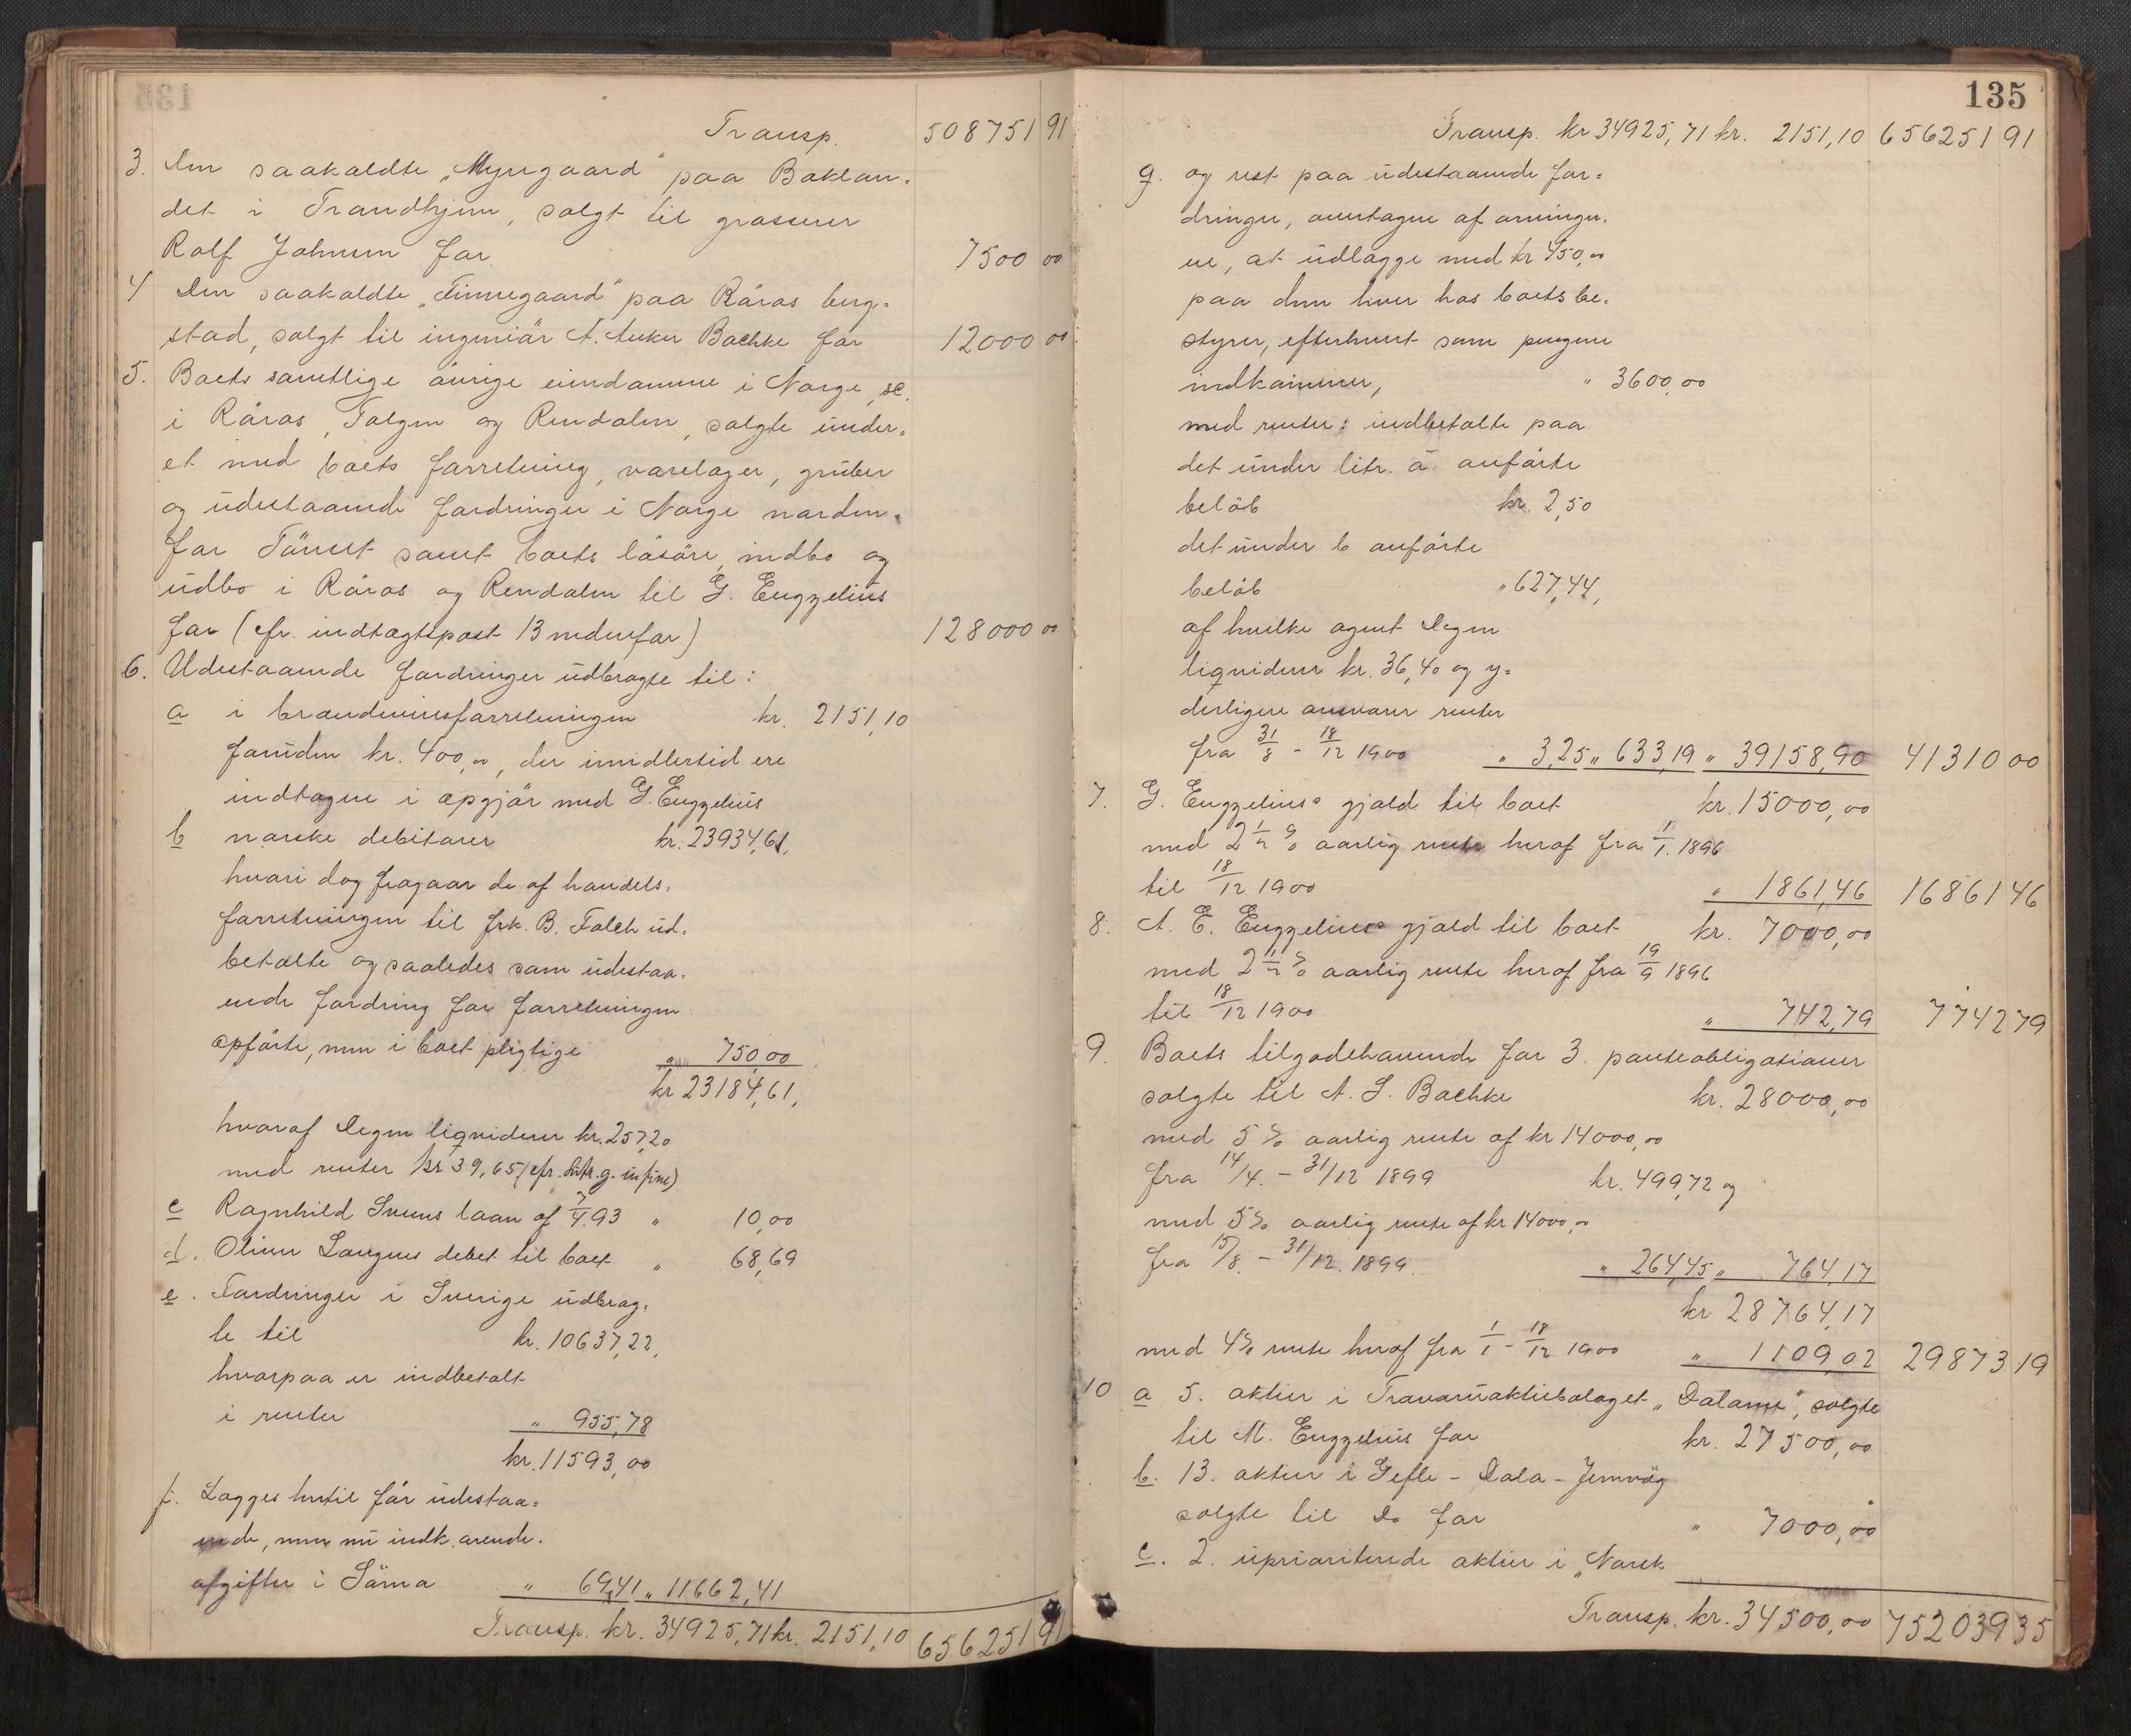 Transp. 508751 91
3. Den saakaldte „Myregaard" paa Baklan-
det i Trondhjem, solgt til grosserer
Rolf Johnsen for 7500 00
4 Den saakaldte „Finnegaard" paa Röros berg-
stad, solgt til ingeniör A. Anker Bachke for 12000 00
5. Boets samtlige övrige eiendomme i Norge, sc.
i Röros, Tolgen og Rendalen, solgte under-
et med boets forretning, varelager, gruber
og udestaaende fordringer i Norge norden-
for Tönset samt boets lösöre, indbo og
udbo i Röros og Rendalen til G. Engzelius
for (cfr. indtægtspost 13 nedenfor) 128000 00
6. Udestaaende fordringer udbragte til:
a i brændevinsforretningen kr. 2151,10
foruden kr. 400,00, der imidlertid ere
indtagne i opgjör med G. Engzelius
b norske debitorer kr. 23934,61,
hvori dog fragaar de af handels-
forretningen til frk. B. Falch ud-
betalte og saaledes som udestaa-
ende fordring for forretningen
opförte, men i boet pligtige „ 750,00
kr 23184,61,
hvoraf Degen liqviderer kr. 257,20
med renter kr 39,65 (cfr. litr. g. in fine)
c Ragnhild Svens laan af 7/4. 93 „ 10,00
d. Oliver Langens debet til boet „ 68,69
e. Fordringer i Sverige udbrag-
te til kr. 10637,22,
hvorpaa er indbetalt
i renter „ 955,78
kr. 11593,00
f. Lægges hertil för udestaa-
ende, men nu indk. arende-
afgifter i Särna „ 69,41 „ 11662,41
Transp. kr. 34925,71 kr. 2151,10 656251 91
135
Transp. kr 34925,71 kr. 2151,10 656251 91
g. og rest paa udestaaende for-
dringer, overtagne af arvinger-
ne, at udlægge med kr 450,00
paa den hver hos boets be-
styrer, efterhvert som pengene
indkommer, „ 3600,00
med renter: indbetalte paa
det under litr. a anförte
belöb kr. 2,50
det under b anförte
belöb „ 627,44,
af hvilke agent Degen
liqviderer kr. 36,40 og y-
derligere ansvarer renter
fra 31/8 - 18/12 1900 „ 3,25 „ 633,19 „ 39158,90 41310 00
7. G. Engzelius's gjæld til boet kr. 15000,00
med 2 1/2 % aarlig rente heraf fra 1/1. 1896
til 18/12 1900 „ 1861,46 16861 46
8. A. E. Engzelius's gjæld til boet kr. 7000,00
med 2 1/2 % aarlig rente heraf fra 19/9 1896
til 18/12 1900 „ 742,79 7742 79
9. Boets tilgodehavende for 3. panteobligationer
solgte til A. S. Bachke kr. 28000,00
med 5 % aarlig rente af kr 14000,00
fra 14/4. - 31/12 1899 kr. 499,72 og
med 5% aarlig rente af kr 14000,00
fra 15/8. - 31/12. 1899. „ 264,45 „ 764,17
kr 28764,17
med 4% rente heraf fra 1/1 - 18/12 1900 „ 1109,02 29873 19
10 a 5. aktier i Travaruaktiebolaget „Dalarne", solgte
til M. Engzelius for kr. 27500,00
b. 13. aktier i Gefle - Dala - Jernväg
solgte til Do for „ 7000,00
c. 2. uprioriterede aktier i „Norsk
Transp. kr. 34500,00 752039 35